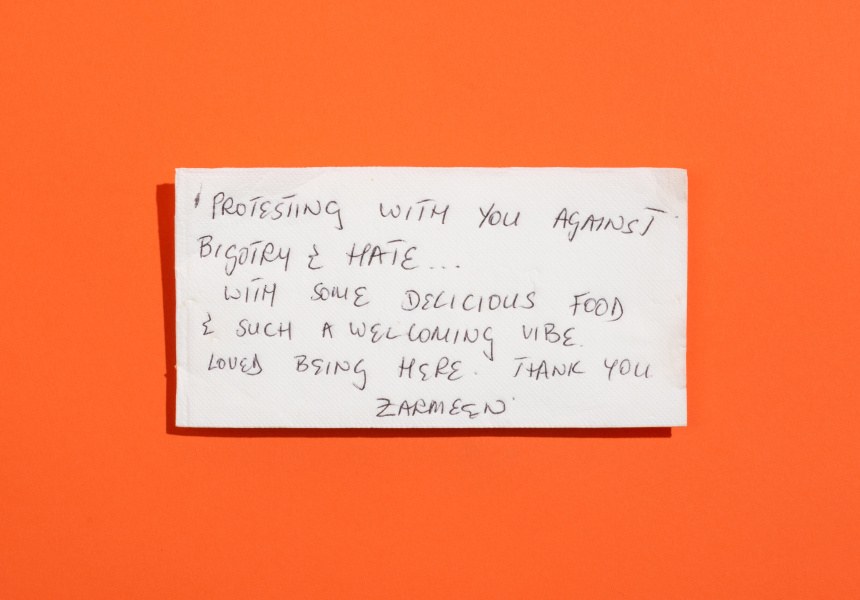 PROTESTING WITH YOU AGAINST
BIGOTRY & HATE...
WITH SOME DELICIOUS FOOD
& SUCH A WELCOMING VIBE.
LOVED BEING HERE. THANK YOU
ZARMEEN